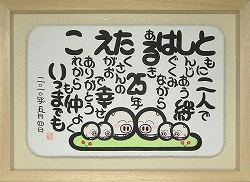 ともに二人で
しんじあう絆
はぐくみながら
あるき25年
たくさんの
えがおで幸せ
ありがとう
これからも
いつまでも
二〇一〇年五月四日